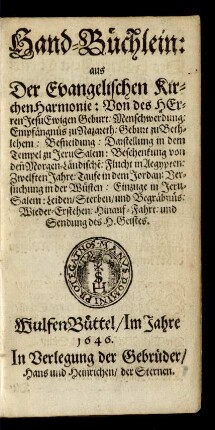 Hand-Büchlein:
aus
Der Evangelischen Kir-
chenHarmonie: Von des HEr-
ren Jesu Ewigen Geburt: Menschwerdung:
Empfängnüs zu Nazareth: Geburt zu Beth-
lehem: Beschneidung: Darstellung in dem
Tempel zu JeruSalem: Beschenkung von
den Morgen-Ländisch: Flucht in Aegypten:
Zwelften Jahr: Taufe in dem Jordan: Ver-
suchung in der Wüsten: Einzuge in Jeru-
Salem: Leiden/Sterben/und Begräbnüs:
Wieder-Erstehen: Hinauf-Fahrt: und
Sendung des H. Geistes.
PROTEGAT NOS MANUS DOMINI
WulfenBüttel/Im Jahre
1646.
In Verlegung der Gebrüder/
Hans und Heinrichen/der Sternen.